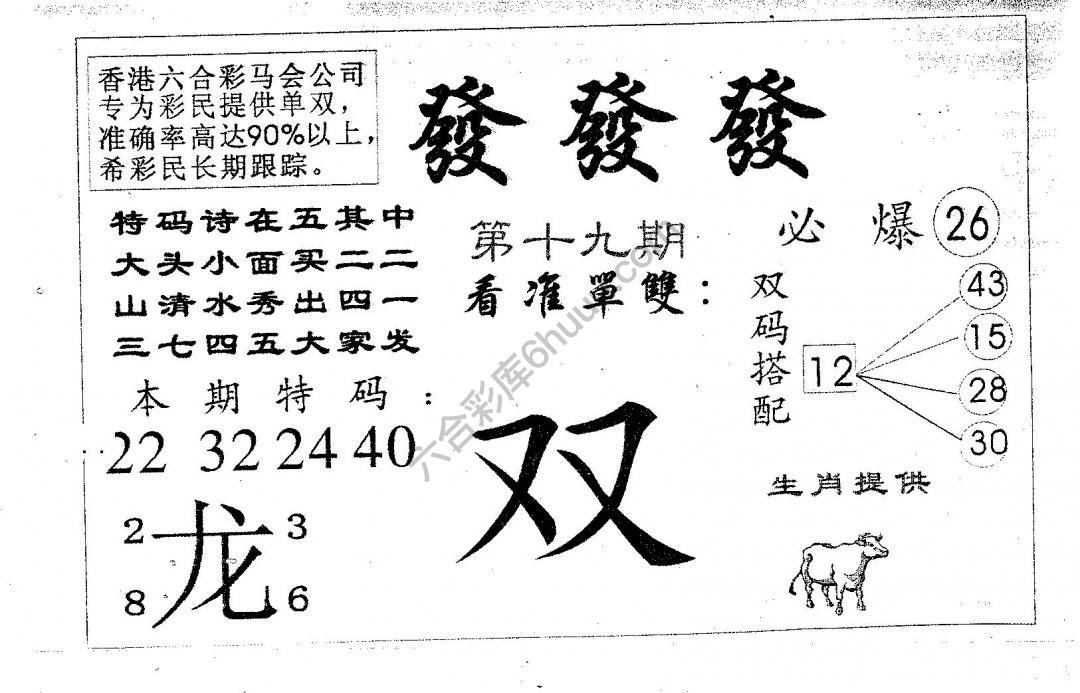 香港六合彩马会公司
专为彩民提供单双，
准确率高达90%以上，
希彩民长期跟踪。
發 發 發
特码诗在五其中
大头小面买二二
山清水秀出四一
三七四五大家发
第十九期
看准單雙：
必爆 26
双码搭配
12
43
15
28
30
本期特码：
22 32 24 40
2 龙 3
8 6
双
生肖提供
六合彩库6huu.com